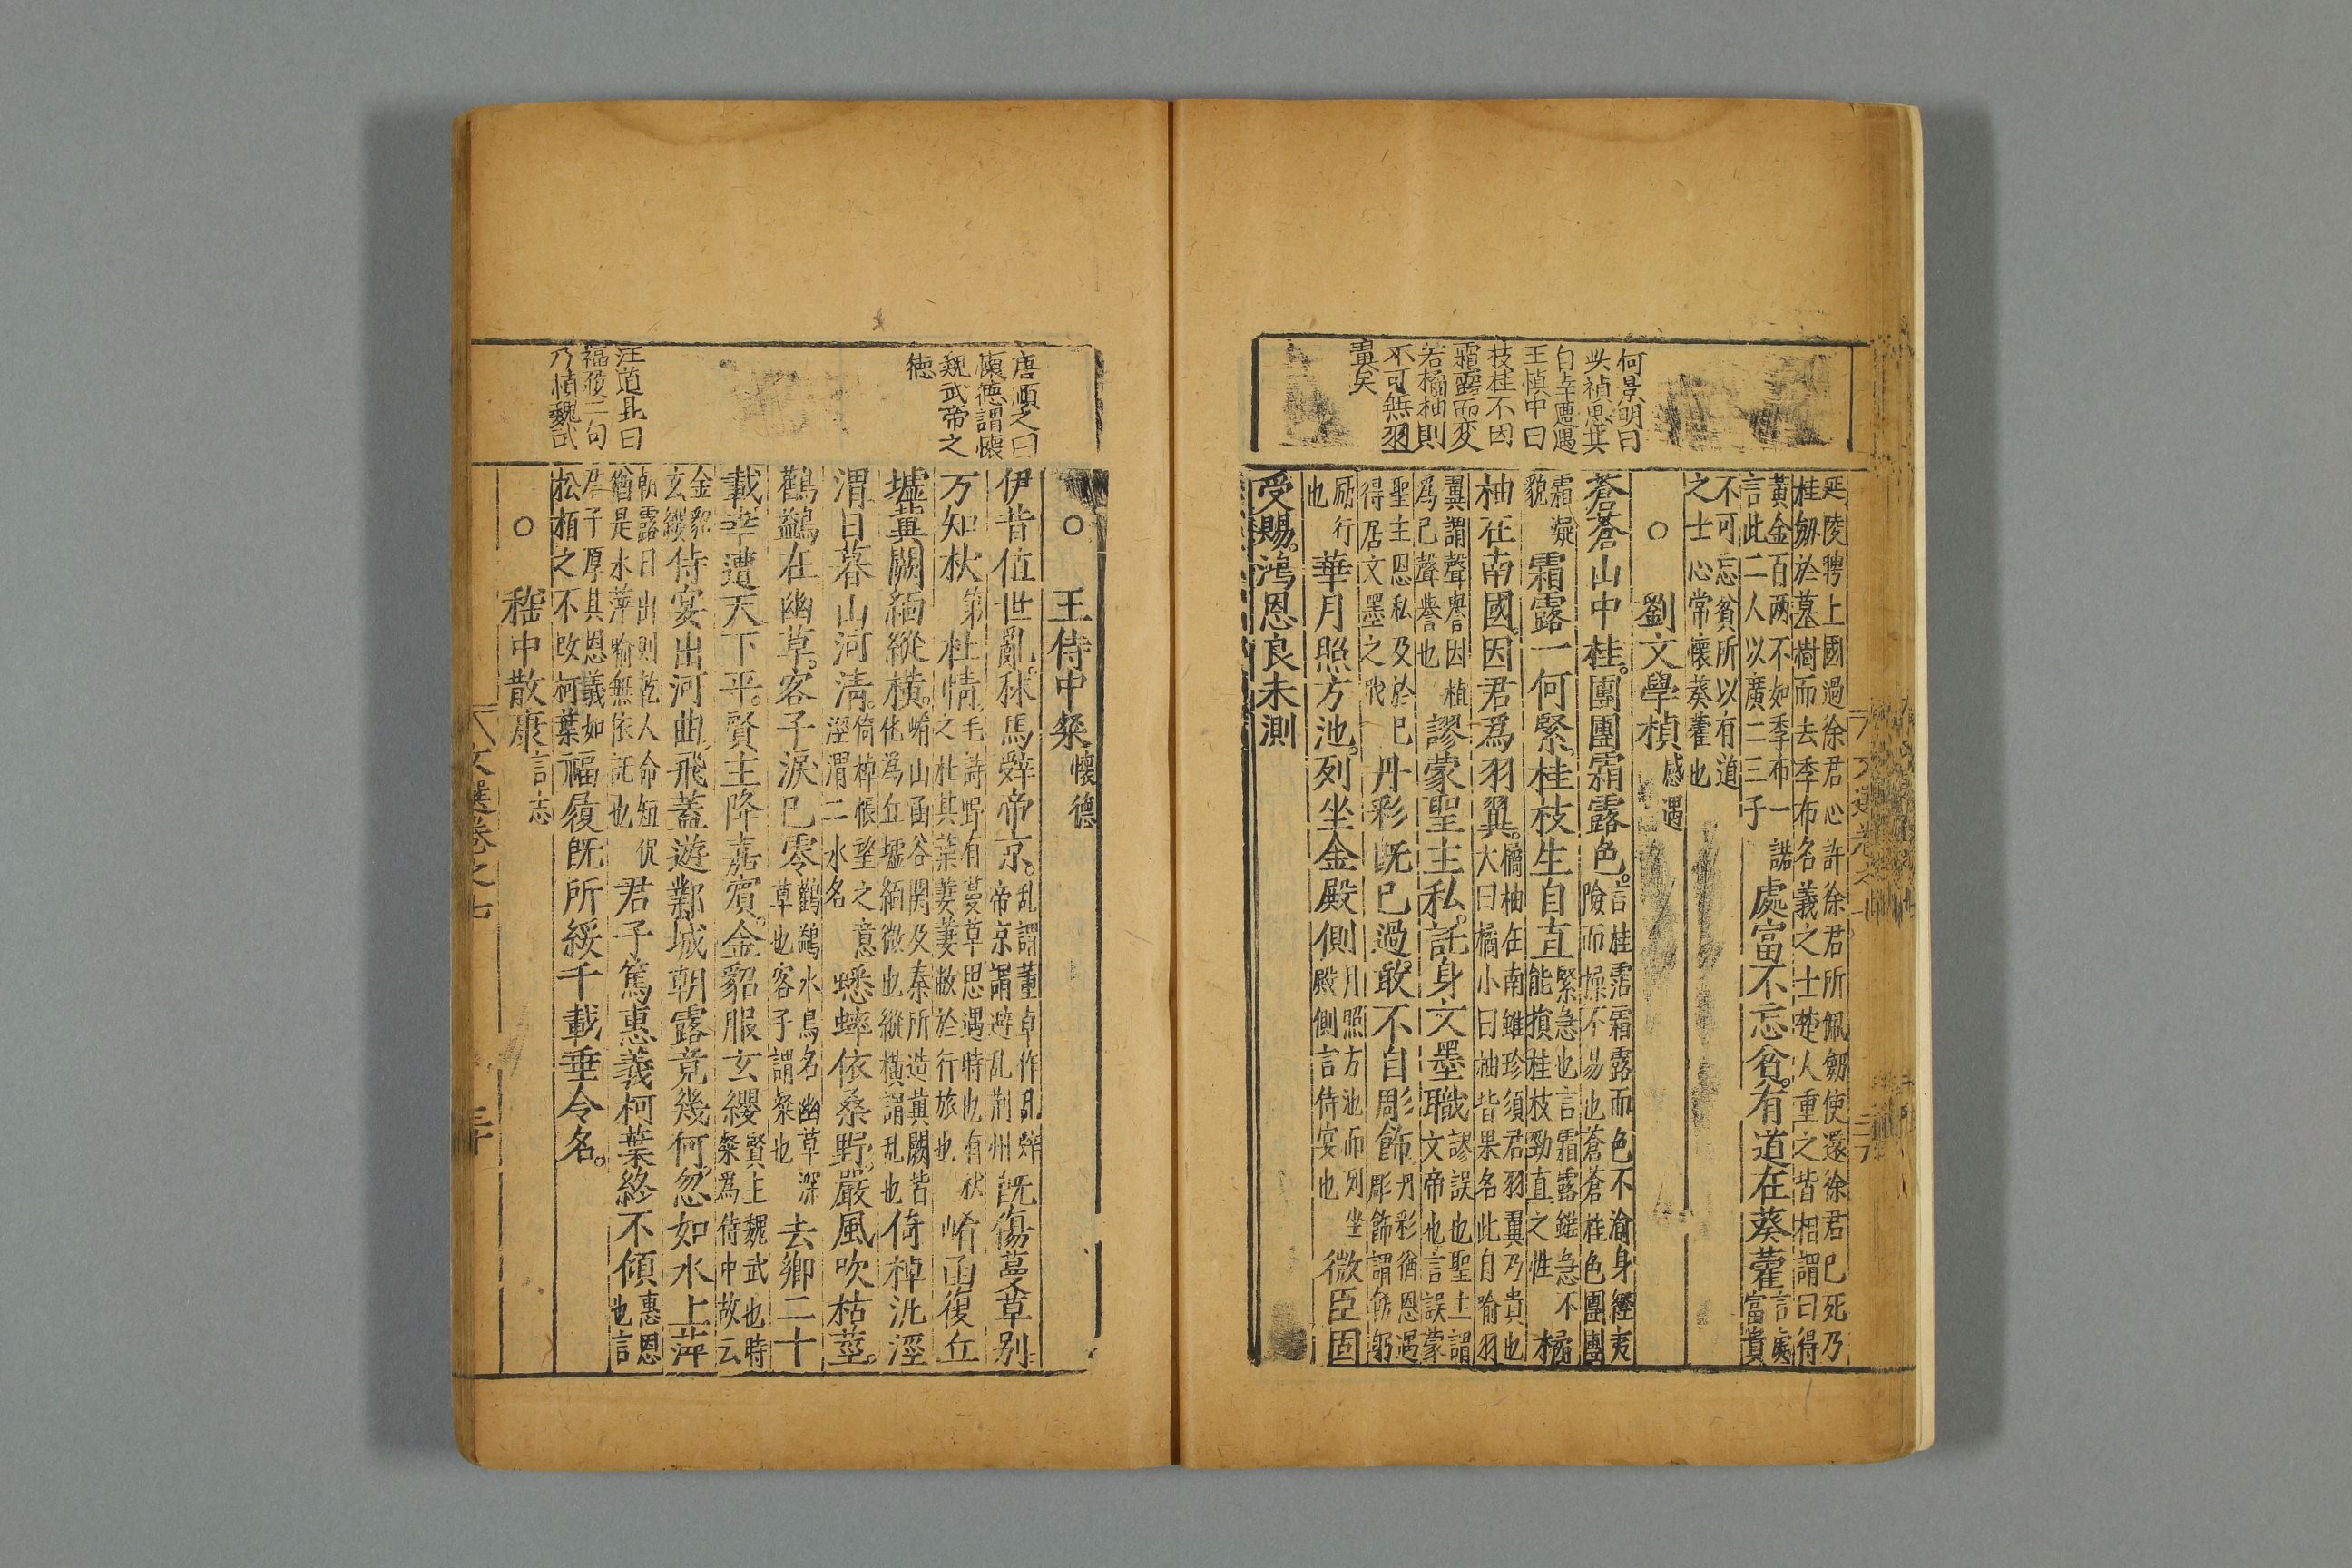 何景明曰
此禎思其
自幸遭遇
王慎中曰
枝桂不因
霜露而変
若橘柚則
不可無羽
翼矣
延陵聘上國過徐君心許徐君所佩劒使還徐君已死乃
桂劒於墓樹而去季布名義之士楚人重之皆相謂曰得
黃金百兩不如季布一諾
言此二人以廣二三子
處富不忘貧。有道在葵藿
言處
富貴
不可忘貧所以有道
之士心常懷葵藿也
○劉文學楨感遇
蒼蒼山中桂。團團霜露色。
言桂霑霜露而色不渝身經夷
險而操不易也蒼蒼桂色團團
霜凝
貌
霜露一何緊。桂枝生自直
緊急也言霜露雖急不
能損桂枝勁直之性
橘
柚在南國。因君爲羽翼。
橘柚在南雖珍須君羽翼乃貴也
大曰橘小曰柚皆果名此自喻羽
翼謂聲譽因楨
爲已聲譽也
謬蒙聖主私。託身文墨職
謬誤也聖主謂
文帝也言誤蒙
聖主恩私及於已
得居文墨之職
丹彩既已過。敢不自彫飾
丹彩猶恩遇
彫飾謂飾躬
勵行
也
華月照方池。列坐金殿側
月照方池而列坐
殿側言侍宴也
微臣固
受賜。鴻恩良未測
唐順之曰
懷德謂懷
魏武帝之
德
汪道昆曰
福履二句
乃楨魏武
○王侍中粲懷德
伊昔值世亂。秣馬辭帝京。
乱謂董卓作乱辤
帝京謂避乱荆州
既傷蔓草别
万知杕
第
杜情。
毛詩野有蔓草思遇時也有杕
之杜其葉萋萋敝於行旅也
崤函復丘
墟。冀闕緬縱横。
崤山函谷関及秦所造冀闕皆
化為丘墟緬微也縱横謂乱也
倚棹汎涇
渭。日暮山河清。
倚棹悵望之意
涇渭二水名
蟋蟀依桑野。嚴風吹枯莖。
鸛鷁在幽草。客子淚已零
鸛鷁水鳥名幽草深
草也客子謂粲也
去鄉二十
載。幸遭天下平。賢主降嘉賓。金貂服玄纓
賢主魏武也時
粲爲侍中故云
金貂
玄纓
侍宴出河曲。飛蓋遊鄴城。朝露竟幾何。忽如水上萍
朝露日出則乾人命短促
猶是水萍喻無依託也
君子篤惠義。柯葉終不傾
惠恩
也言
君子厚其恩義如
松栢之不改柯葉
福履既所綏。千載垂令名。
○嵇中散康言志
文選卷之七
三十